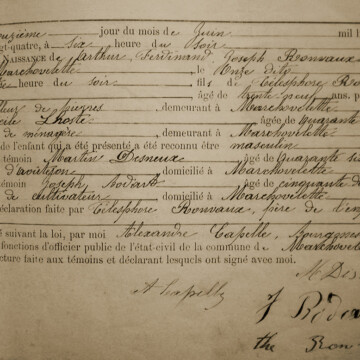 ouzième jour du mois de Juin mil h
gt-quatre, à six heure du soir
NAISSANCE de Arthur Ferdinand Joseph Ronvaux
Marchovelette, le Onze dito
heure du soir fil s de Télesphore Ro
âgé de trente neuf ans, p
demeurant à Marchovelette
Lhoste âgée de quarante
de ménagère demeurant à Marchovelette
de l'enfant qui a été présenté a été reconnu être masculin
témoin Martin Desneux âgé de Quarante
domicilié à Marchovelette
témoin Joseph âgé de cinquante
de cultivateur domicilié à Marchovelette
déclaration faite par Télesphore Ronvaux, père de l'en
suivant la loi, par moi Alexandre Capelle, Bourgmes
fonctions d'officier public de l'état-civil de la commune de Marchovelet
cture faite aux témoins et déclarant lesquels ont signé avec moi.
M. Des
A Capelle
J
the Ron